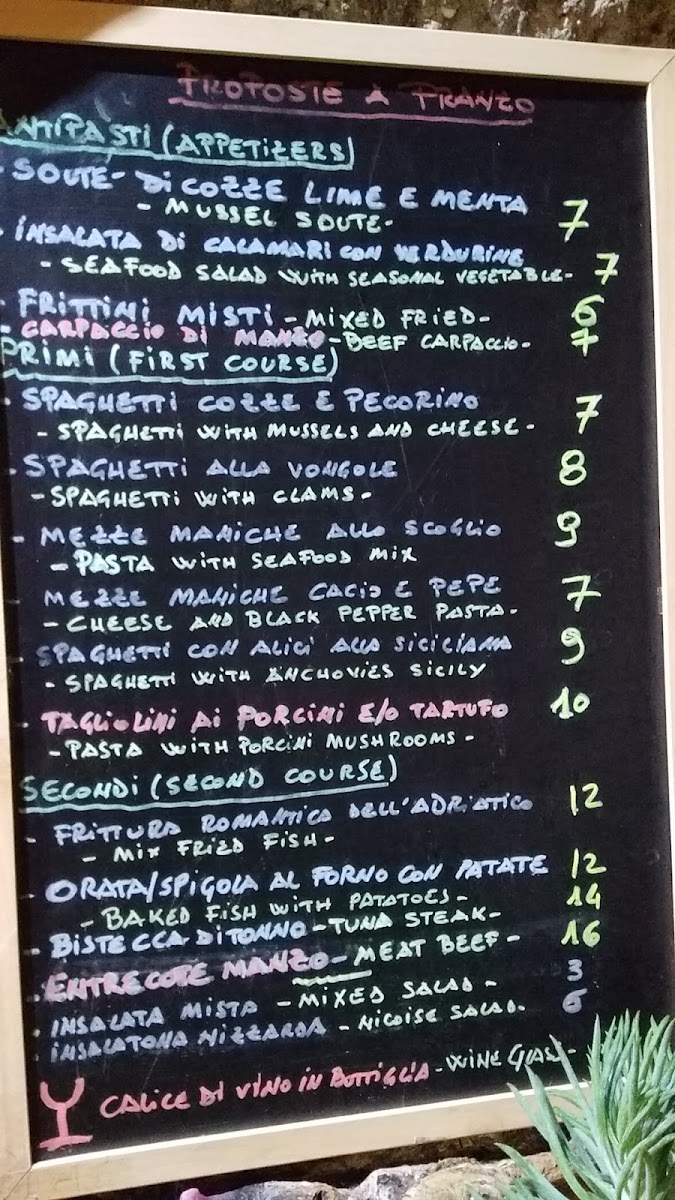 PROPOSTE A PRANZO
ANTIPASTI (APPETIZERS)
- SOUTE- DI COZZE LIME E MENTA 7
- MUSSEL SOUTE-
- INSALATA DI CALAMARI CON VERDURINE
- SEAFOOD SALAD WITH SEASONAL VEGETABLE- 7
- FRITTINI MISTI - MIXED FRIED - 6
- CARPACCIO DI MANZO - BEEF CARPACCIO - 7
PRIMI (FIRST COURSE)
- SPAGHETTI COZZE E PECORINO 7
- SPAGHETTI WITH MUSSELS AND CHEESE -
- SPAGHETTI ALLA VONGOLE 8
- SPAGHETTI WITH CLAMS -
- MEZZE MANICHE ALLO SCOGLIO 9
- PASTA WITH SEAFOOD MIX
- MEZZE MANICHE CACIO E PEPE 7
- CHEESE AND BLACK PEPPER PASTA -
- SPAGHETTI CON ALICI ALLA SICILIANA 9
- SPAGHETTI WITH ANCHOVIES SICILY
- TAGLIOLINI AI PORCINI E/O TARTUFO 10
- PASTA WITH PORCINI MUSHROOMS -
SECONDI (SECOND COURSE)
- FRITTURA ROMANTICA DELL'ADRIATICO 12
- MIX FRIED FISH -
- ORATA/SPIGOLA AL FORNO CON PATATE 12
- BAKED FISH WITH PATATOES -
- BISTECCA DI TONNO - TUNA STEAK - 14
- ENTRECOTE MANZO - MEAT BEEF - 16
- INSALATA MISTA - MIXED SALAD - 3
- INSALATONA NIZZARDA - NICOISE SALAD - 6
CALICE DI VINO IN BOTTIGLIA - WINE GLASS -